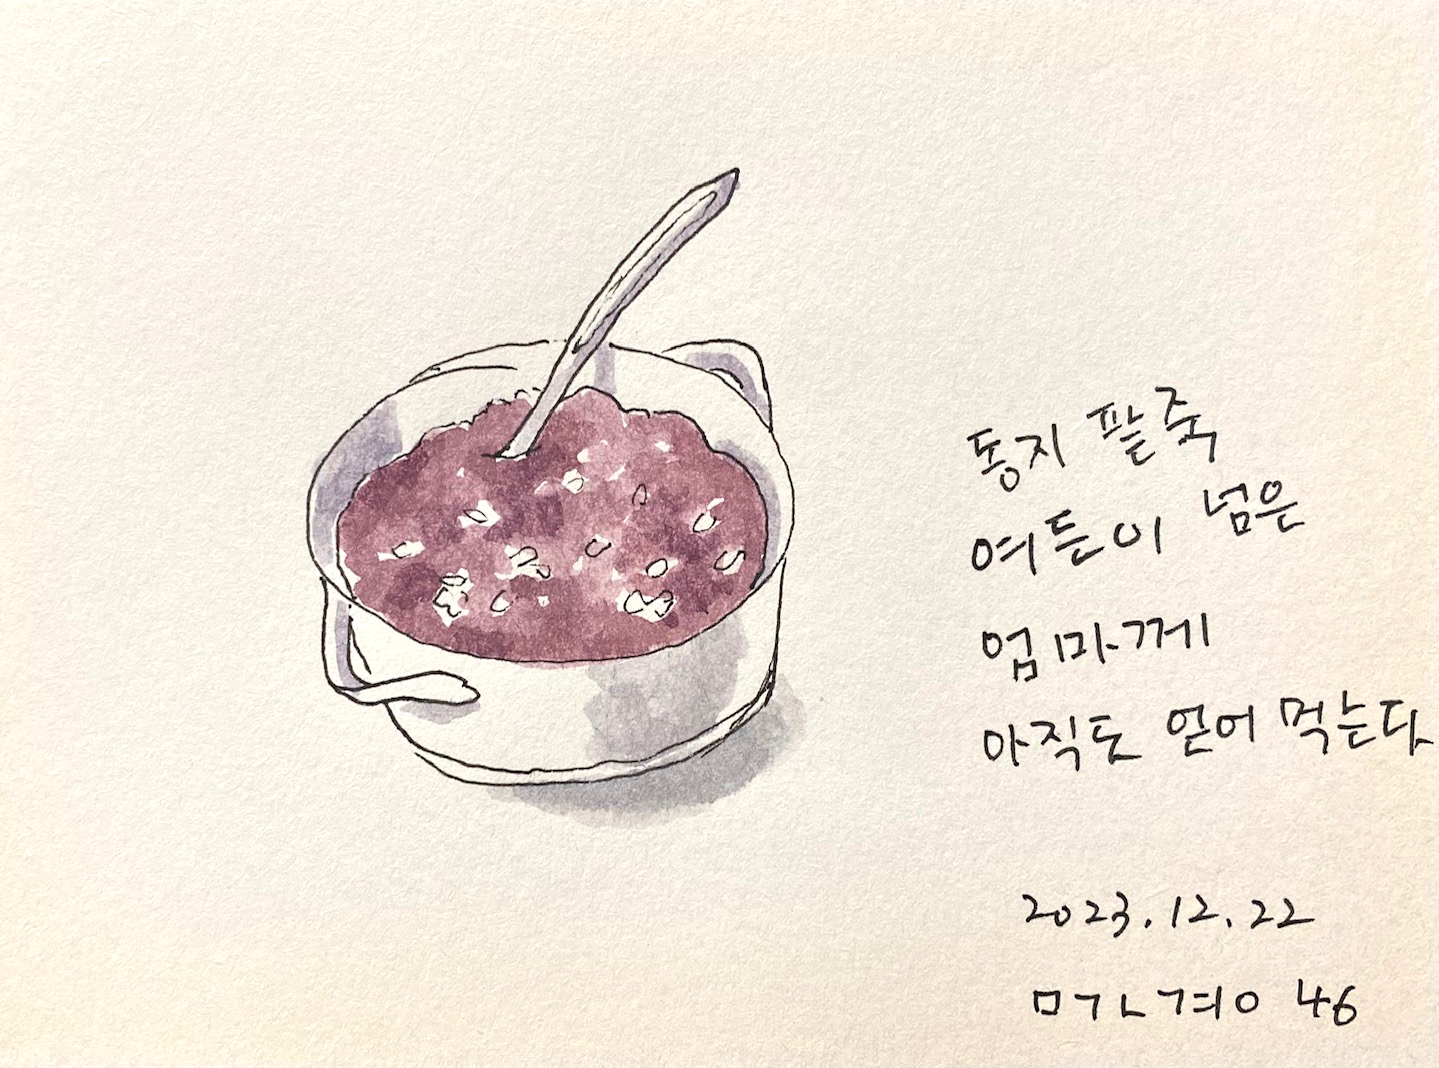 동지 팥죽
여든이 넘은
엄마께
아직도 얻어 먹는다
2023.12.22
ㅁㄱㄴㄱㅕㅇ 46